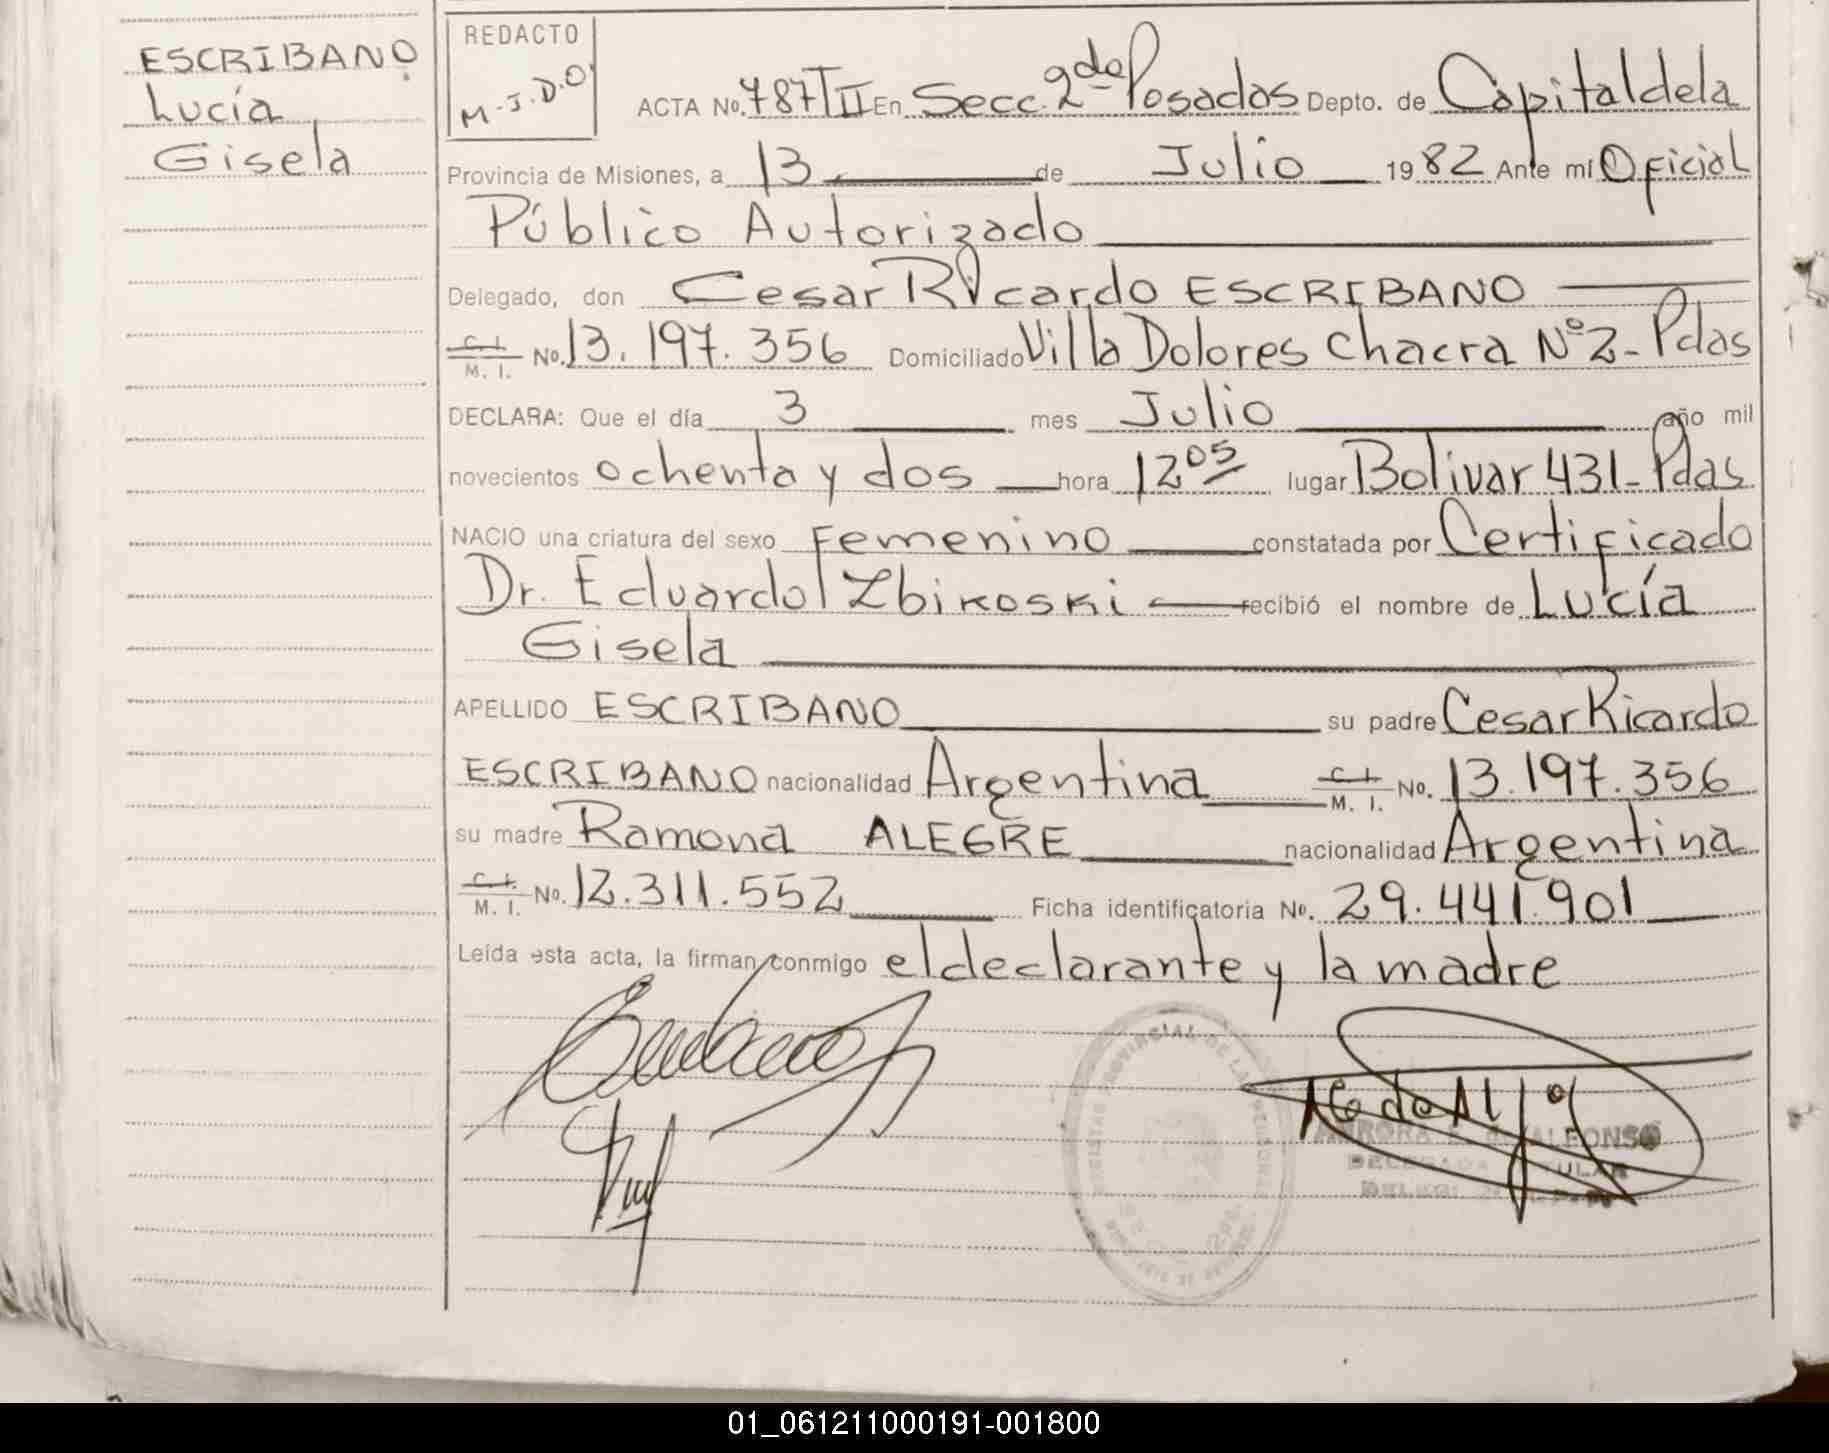 ESCRIBANO
Lucía
Gisela
REDACTO
M.J.D.O
ACTA No. 787 TII En Secc. 2da Posadas Depto. de Capital de la
Provincia de Misiones, a 13 de Julio 1982 Ante mí Oficial
Público Autorizado
Delegado, don Cesar Ricardo ESCRIBANO
C. I. M. I. No. 13.197.356 Domiciliado Villa Dolores Chacra Nº2- Pdas
DECLARA: Que el día 3 mes Julio año mil
novecientos ochenta y dos hora 12 05 lugar Bolivar 431- Pdas.
NACIO una criatura del sexo Femenino constatada por Certificado
Dr. Eduardo Zbikoski recibió el nombre de Lucía
Gisela
APELLIDO ESCRIBANO su padre Cesar Ricardo
ESCRIBANO nacionalidad Argentina C. I. M. I. No. 13.197.356
su madre Ramona ALEGRE nacionalidad Argentina
C. I. M. I. No. 12.311.552 Ficha identificatoria No. 29.441.901
Leída esta acta, la firman conmigo el declarante y la madre
ALFONSO
01_061211000191-001800